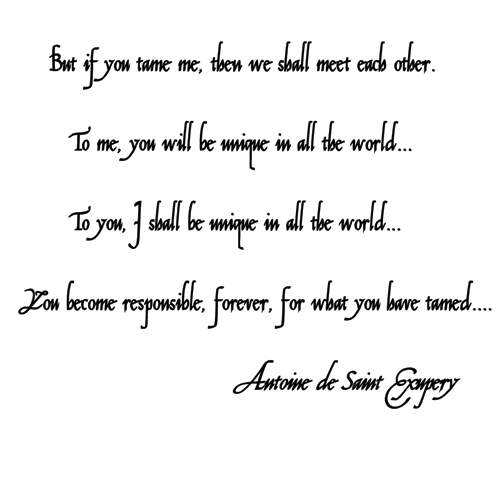 But if you tame me, then we shall meet each other.
To me, you will be unique in all the world...
To you, I shall be unique in all the world...
You become responsible, forever, for what you have tamed....
Antoine de Saint Exupery